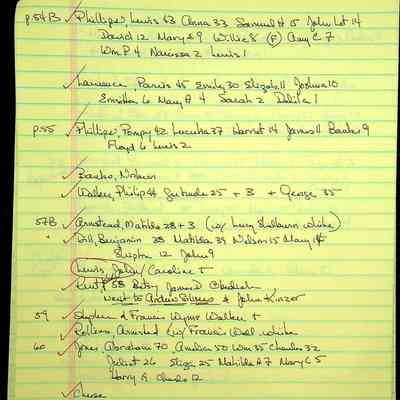 p.54B Phillips, Lewis 63 Anna 33 Samuel H 15 John Lot 14
David 12 Mary A 9 Willie 8 (F) Amy C 7
Wm P 4 Narcissa 2 Lewis 1
Lawrence, Parvis 45 Emily 30 11 Joshua 10
6 Mary A 4 Sarah 2 Delila 1
p.55 Phillips, Pompy 42 37 Harriet 14 James 11 Banks 9
Floyd 6 Lewis 2
Banks,
Walker, Philip 44 Gertrude 25 + 3 + George 35
57B Armstead, Matilda 28 + 3 (w/ Lucy white)
" Dill, Benjamin 38 Matilda 39 Nelson 15 Mary 14
12 John 9
Lewis, John / Caroline +
58 Betsy
next to & John Kinzer
59 Stephen & Francis Wyms Walker +
Armsted (w/ Francis Wall white
60 Jones Abraham 70, Amelia 50 Wm 35 Charles 32
Juliet 26 Eliza 25 Matilda A 7 Mary C 5
Harry 9 Charles 12
Cheese